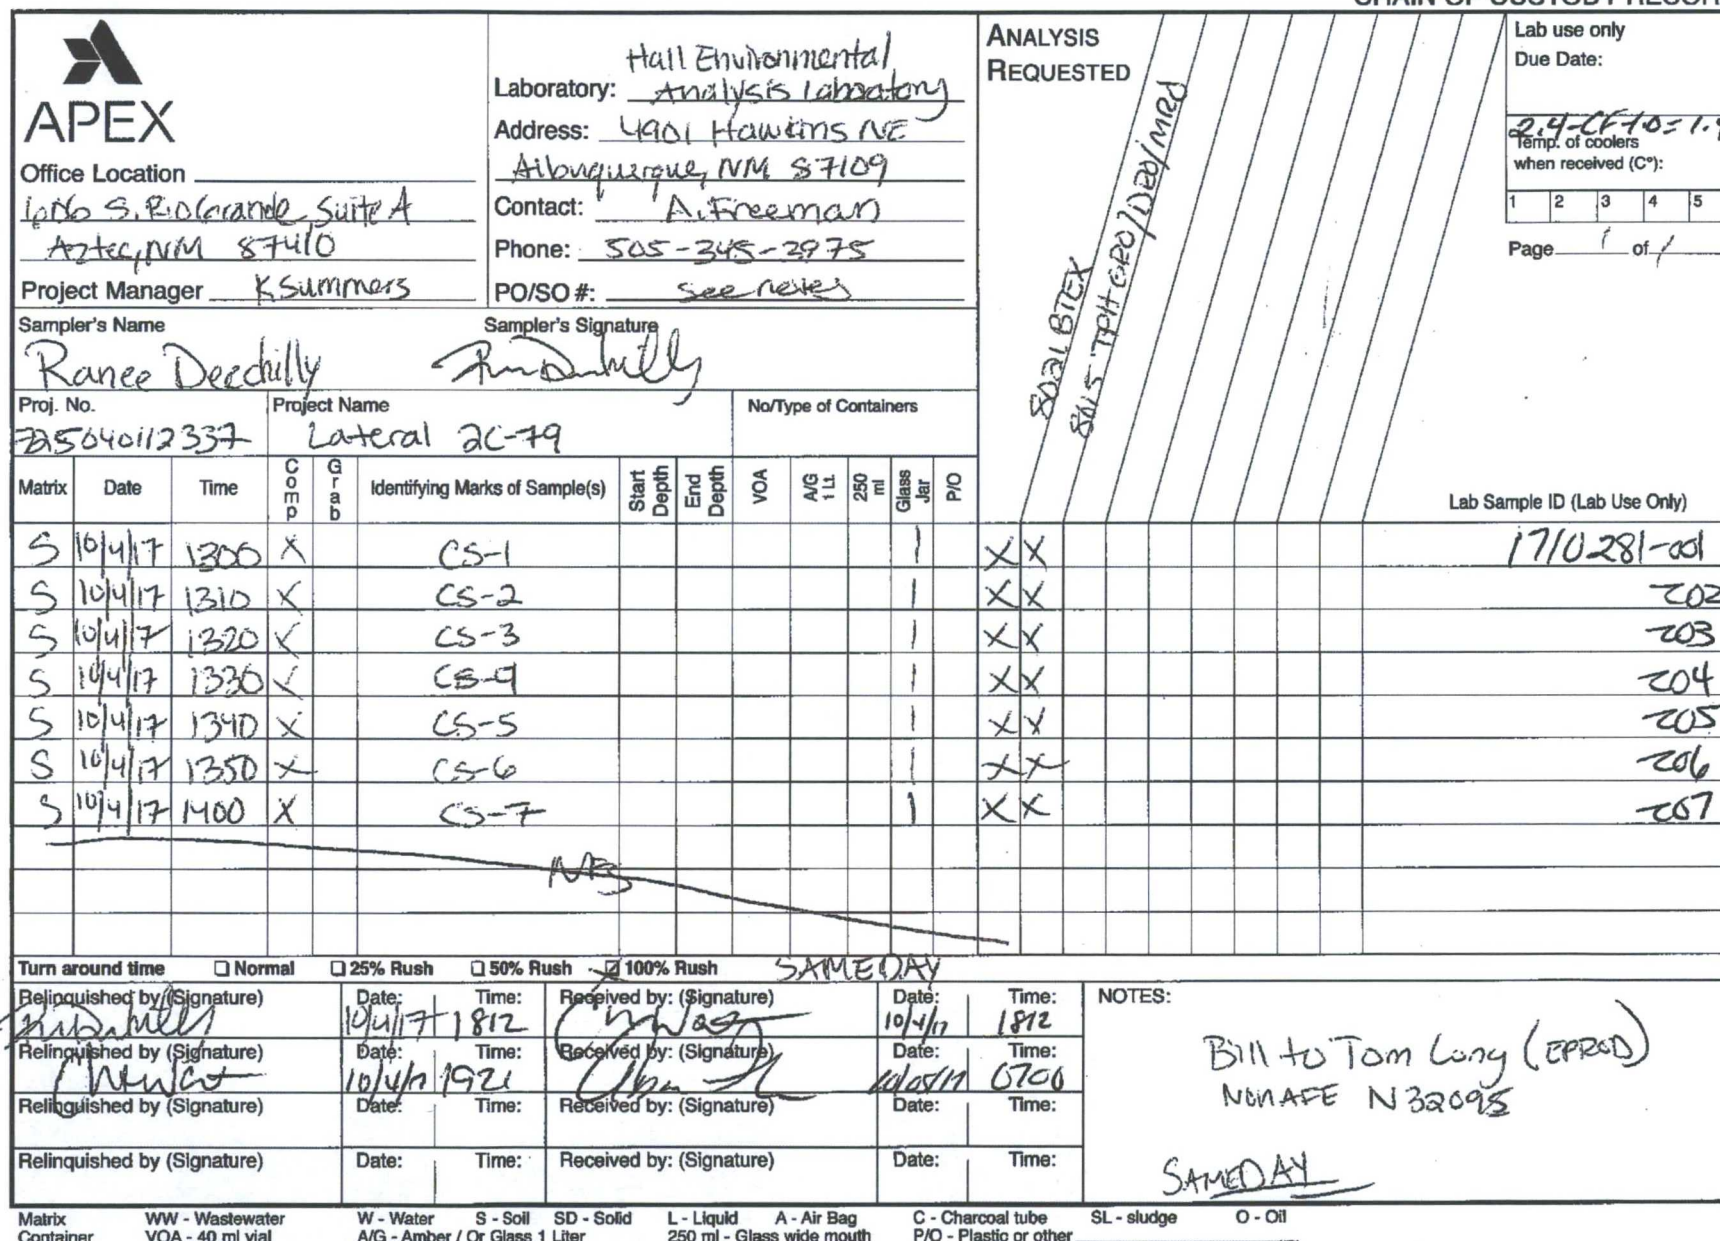 CHAIN OF CUSTODY RECORD
APEX
Office Location
S. Rio Grande, Suite A
Aztec, NM 87410
Project Manager K Summers
Laboratory: Hall Environmental
Analysis Laboratory
Address: 4901 Hawkins NE
Albuquerque, NM 87109
Contact: A. Freeman
Phone: 505-345-3975
PO/SO #: see notes
ANALYSIS
REQUESTED
8021 BTEX
8015 TPH GRO/DRO/MRO
Lab use only
Due Date:
2.4-CF1.0=1.4
Temp. of coolers
when received (C°):
1 2 3 4 5
Page 1 of 1
Sampler's Name
Ranee Deechilly
Sampler's Signature
Proj. No.
725040112337
Project Name
Lateral 2C-79
No/Type of Containers
Matrix Date Time Comp Grab Identifying Marks of Sample(s) Start Depth End Depth VOA A/G 1 Lt. 250 ml Glass Jar P/O Lab Sample ID (Lab Use Only)
S 10/4/17 1300 X CS-1 1 X X 1710281-001
S 10/4/17 1310 X CS-2 1 X X -002
S 10/4/17 1320 X CS-3 1 X X -003
S 10/4/17 1330 X CS-4 1 X X -004
S 10/4/17 1340 X CS-5 1 X X -005
S 10/4/17 1350 X CS-6 1 X X -006
S 10/4/17 1400 X CS-7 1 X X -007
Turn around time Normal 25% Rush 50% Rush 100% Rush SAMEDAY
Relinquished by (Signature) Date: 10/4/17 Time: 1812 Received by: (Signature) Date: 10/4/17 Time: 1812
Relinquished by (Signature) Date: 10/4/17 Time: 1921 Received by: (Signature) Date: 10/05/17 Time: 0700
Relinquished by (Signature) Date: Time: Received by: (Signature) Date: Time:
Relinquished by (Signature) Date: Time: Received by: (Signature) Date: Time:
NOTES:
Bill to Tom Long (EPROD)
NonAFE N32095
SAMEDAY
Matrix WW - Wastewater W - Water S - Soil SD - Solid L - Liquid A - Air Bag C - Charcoal tube SL - sludge O - Oil
Container VOA - 40 ml vial A/G - Amber / Or Glass 1 Liter 250 ml - Glass wide mouth P/O - Plastic or other